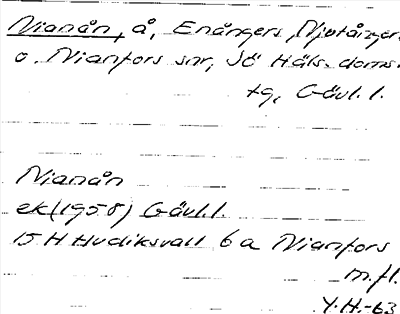 Nianån, å, Enångers, Njutånger
o. Nianfors snr, Jö Häls. doms.
tg, Gävl. l.
Nianån
ek (1958) Gävl. l.
15 H Hudiksvall 6 a Nianfors
m.fl.
Y.H.-63